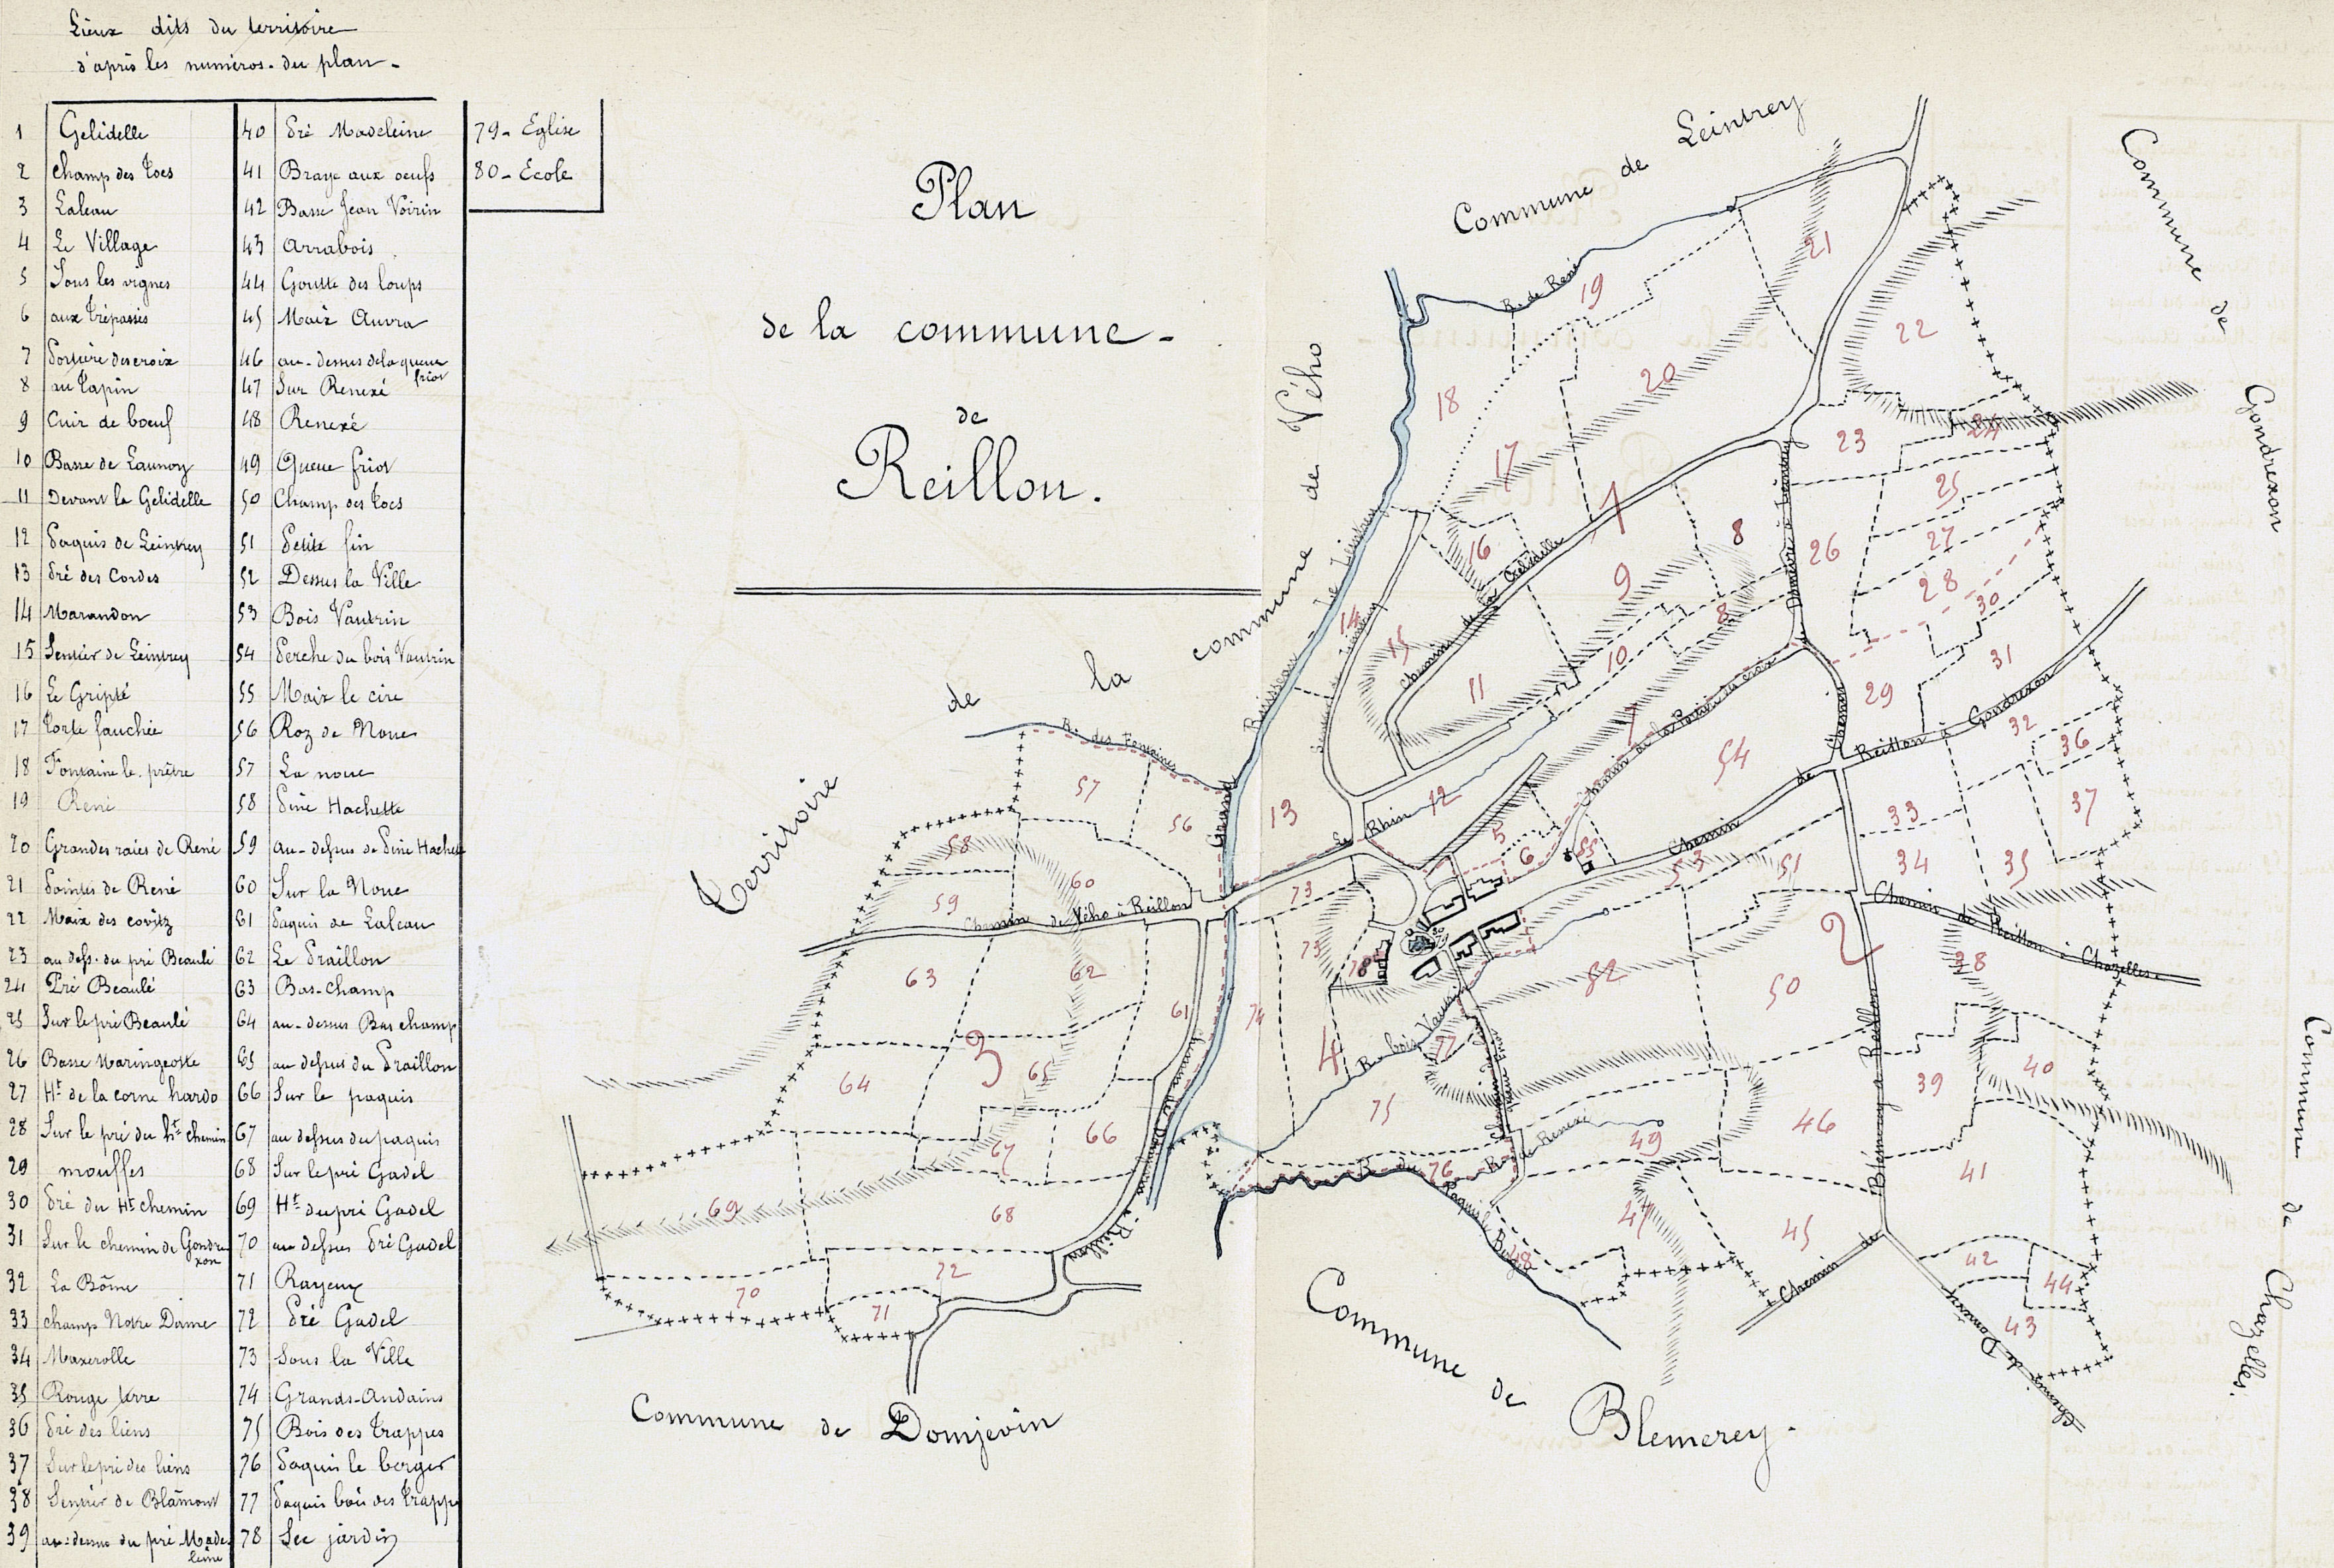 Lieux dits du territoire
d'après les numéros du plan -
1 Gelidelle
2 Champ des Tocs
3 Laleau
4 Le Village
5 Sous les vignes
6 aux Trépassés
7 Portière des croix
8 au Tapin
9 Cuir de boeuf
10 Basse de Launoy
11 Devant la Gelidelle
12 Paquis de Leintrey
13 Pré des Cordes
14 Marandon
15 Sentier de Leintrey
16 Le Gripté
17 Torte fauchée
18 Fontaine le prêtre
19 René
20 Grandes raies de René
21 Pointes de René
22 Maix des covitz
23 au dess. du pré Beaulé
24 Pré Beaulé
25 Sur le pré Beaulé
26 Basse Maringeotte
27 Ht de la corne hardo
28 Sur le pré du ht chemin
29 mouffes
30 Pré du Ht chemin
31 Sur le chemin de Gondrexon
32 La Bôme
33 champ Notre Dame
34 Maxerolle
35 Rouge terre
36 Pré des liens
37 Sur le pré des liens
38 Sentier de Blâmont
39 au-dessus du pré Madeleine
40 Pré Madeleine
41 Braye aux oeufs
42 Basse Jean Voirin
43 Arrabois
44 Goutte des loups
45 Maix Auvra
46 au-dessus de la queue friot
47 Sur Renexé
48 Renexé
49 Queue friot
50 Champ des Tocs
51 Petite fin
52 Dessus la Ville
53 Bois Vautrin
54 Perche du bois Vautrin
55 Maix le cire
56 Roz de Noue
57 La noue
58 Piné Hachette
59 au-dessus de Piné Hachette
60 Sur la Noue
61 Paquis de Laleau
62 Le Praillon
63 Bas-champ
64 au-dessus Bas champ
65 au dessus du Praillon
66 Sur le paquis
67 au dessus du paquis
68 Sur le pré Gadel
69 Ht du pré Gadel
70 au dessus Pré Gadel
71 Rayeux
72 Pré Gadel
73 Sous la Ville
74 Grands-Andains
75 Bois des Trappes
76 Paquis le berger
77 Paquis bois des Trappe
78 Sec jardin
79 - Eglise
80 - Ecole
Plan
de la commune -
de
Reillon.
Commune de Leintrey
Commune de Gondrexon
Commune de Chazelles.
Commune de Blemerey.
Commune de Domjevin
Territoire de la commune de Vého
R. de René
19
21
22
18
20
17
23
24
25
1
16
8
26
27
9
28
30
14
15
8
10
31
11
29
7
32
36
54
57
12
13
56
33
37
5
6
55
58
53
51
34
35
60
73
59
2
73
78
38
63
62
52
50
61
74
3
4
77
65
64
39
40
75
66
49
46
67
76
41
69
68
47
45
48
42
72
44
70
71
43
Ruisseau de Leintrey
Sentier de Leintrey
Chemin de la Gelidelle
Domèvre à Leintrey
Chemin de la Portière des croix
Chemin de Reillon à Gondrexon
Le Rhin
R. des Fontaines
Grand
Chemin de Vého à Reillon
Chemin de Reillon à Chazelles
R. bois Vautrin
R. de Renexé
R. du Paquis le Berger
Chemin de Blémerey à Reillon
Chemin de Domèvre
Chemin de Domjevin à Reillon